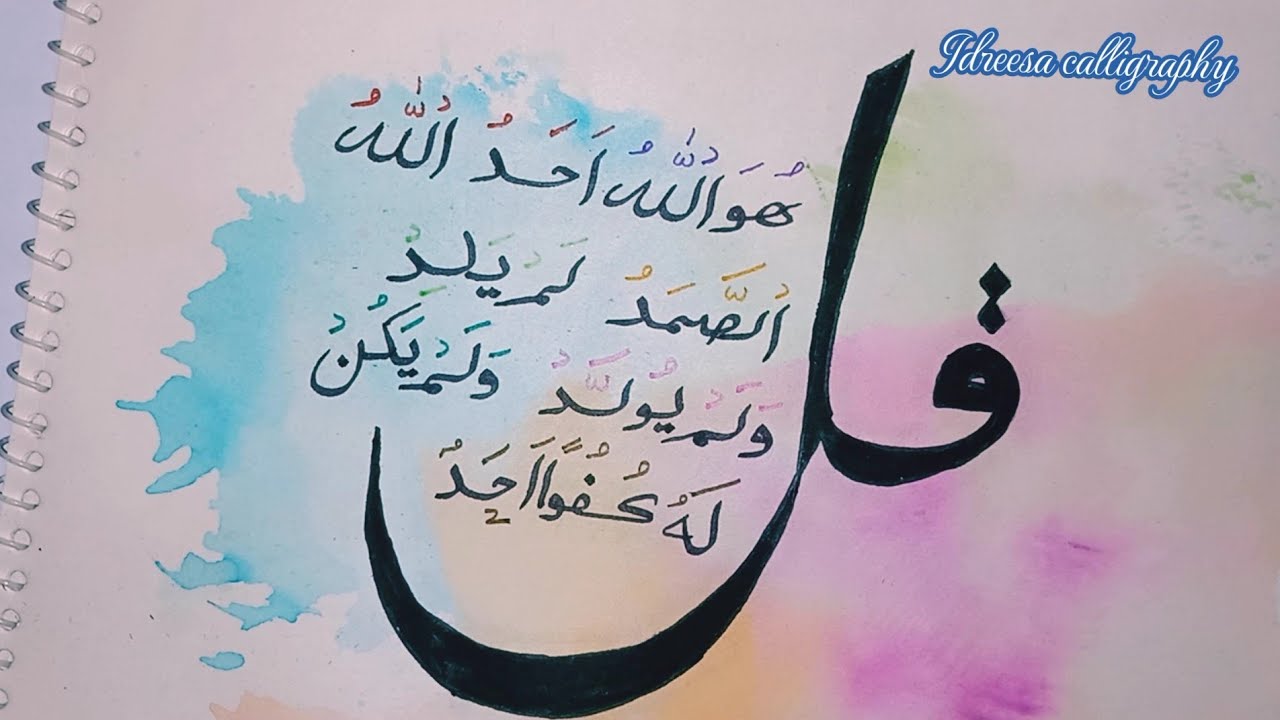 Idreesa calligraphy
قل
هُوَ اللّٰهُ اَحَدٌ اللّٰهُ
الصَّمَدُ لَمْ يَلِدْ
وَلَمْ يُولَدْ وَلَمْ يَكُنْ
لَهُ كُفُوًا اَحَدٌ